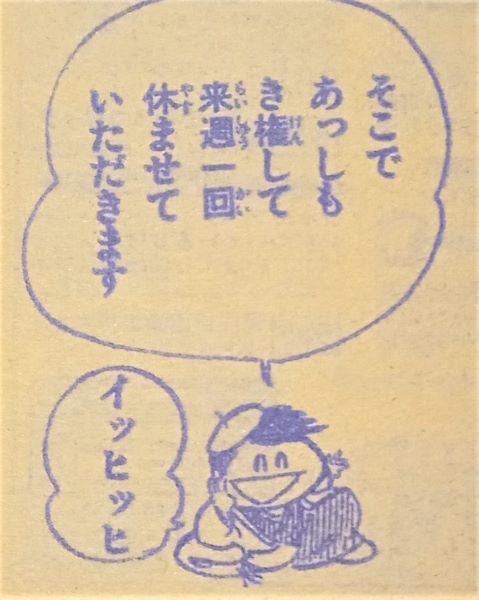 そこで
あっしも
き権して
来週一回
休ませて
いただきます
イッヒッヒ